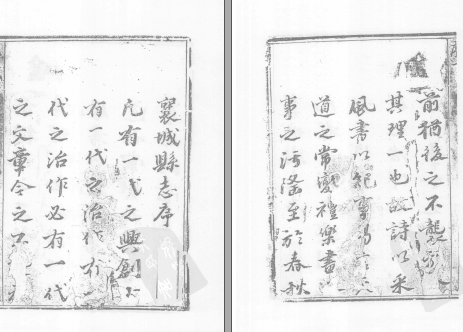 襄城縣志序
凡有一代之興創
有一代之治作有一
代之治作必有一代
之文章今之不
前猶後之不襲
其理一也故詩以采
風書以紀事易言
道之常變禮樂書
事之污隆至於春秋